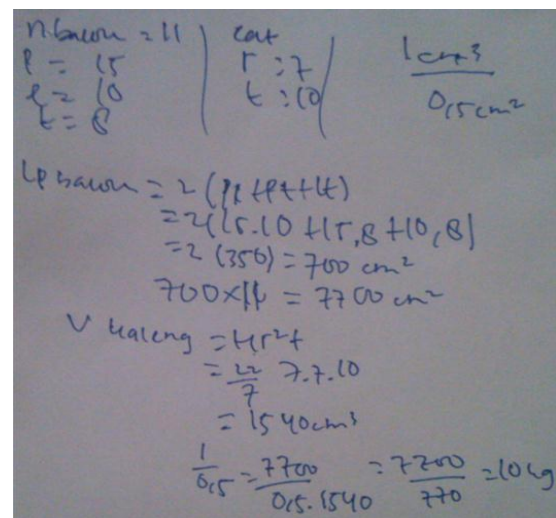 n. balon = 11
p = 15
l = 10
t = 8
cat
r : 7
t : 10
1 cm3
0,5 cm2
Lp balon = 2 (pl + pt + lt)
= 2(15.10 + 15,8 + 10,8)
= 2 (350) = 700 cm2
700 x 11 = 7700 cm2
V kaleng = πr2t
= 22/7 7.7.10
= 1540 cm3
1/0,5 = 7700/0,5.1540 = 7700/770 = 10 kg